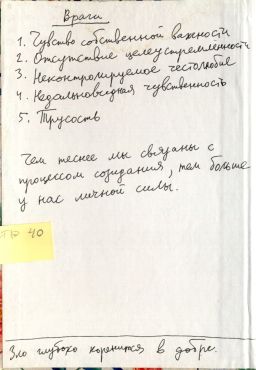 Враги
1. Чувство собственной важности
2. Отсутствие целеустремленности
3. Неконтролируемое честолюбие
4. Недальновидная чувственность
5. Трусость
Чем теснее мы связаны с
процессом созидания, тем больше
у нас личной силы.
40
Зло глубоко коренится в добре.